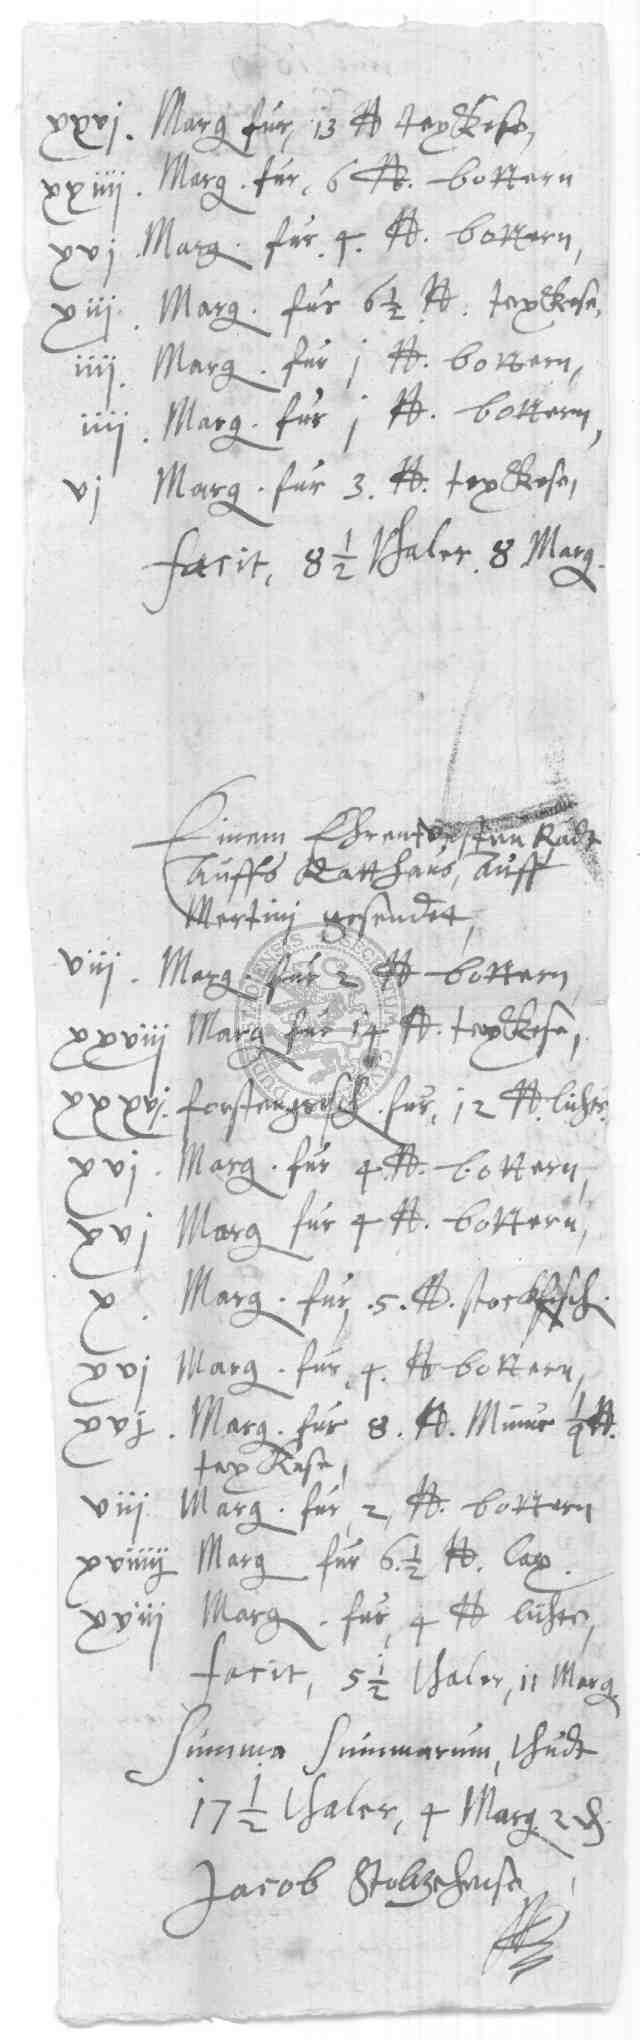 xxvj. Marg fur, 13 ℔ texkese,
xxiiij. Marg. fur, 6 ℔. bottern
xvj. Marg. fur. 4. ℔. bottern,
xiij. Marg. fur 6½ ℔. texkese,
iiij. Marg. fur j ℔. bottern,
iiij. Marg. fur j ℔. bottern,
vj Marg. fur 3. ℔. texkese,
facit, 8½ thaler. 8 Marg.
Einem Ehrentvesten Radt
Auffs Ratthaus, auff
Mertinj gesendet,
viij. Marg. fur 2 ℔ bottern
xxviij Marg fur 14 ℔. texkese,
xxxvj. forstengrosch. fur, 12 ℔. lichte.
xvj. Marg. fur 4 ℔. bottern,
xvj Marg fur 4 ℔. bottern,
x. Marg. fur, .5. ℔. stockfisch.
xvj Marg. fur, 4. ℔ bottern,
xvj. Marg. fur 8. ℔. Minus ¼ ℔.
tex Kese,
viij Marg. fur, 2, ℔. bottern
xviiij Marg fur 6.½ ℔. lax.
xviij Marg. fur, 4 ℔ lichte,
facit, 5½ thaler, 11 Marg.
Summa Summarum, thudt
17½ thaler, 4 Marg. 2 ₰.
Jacob